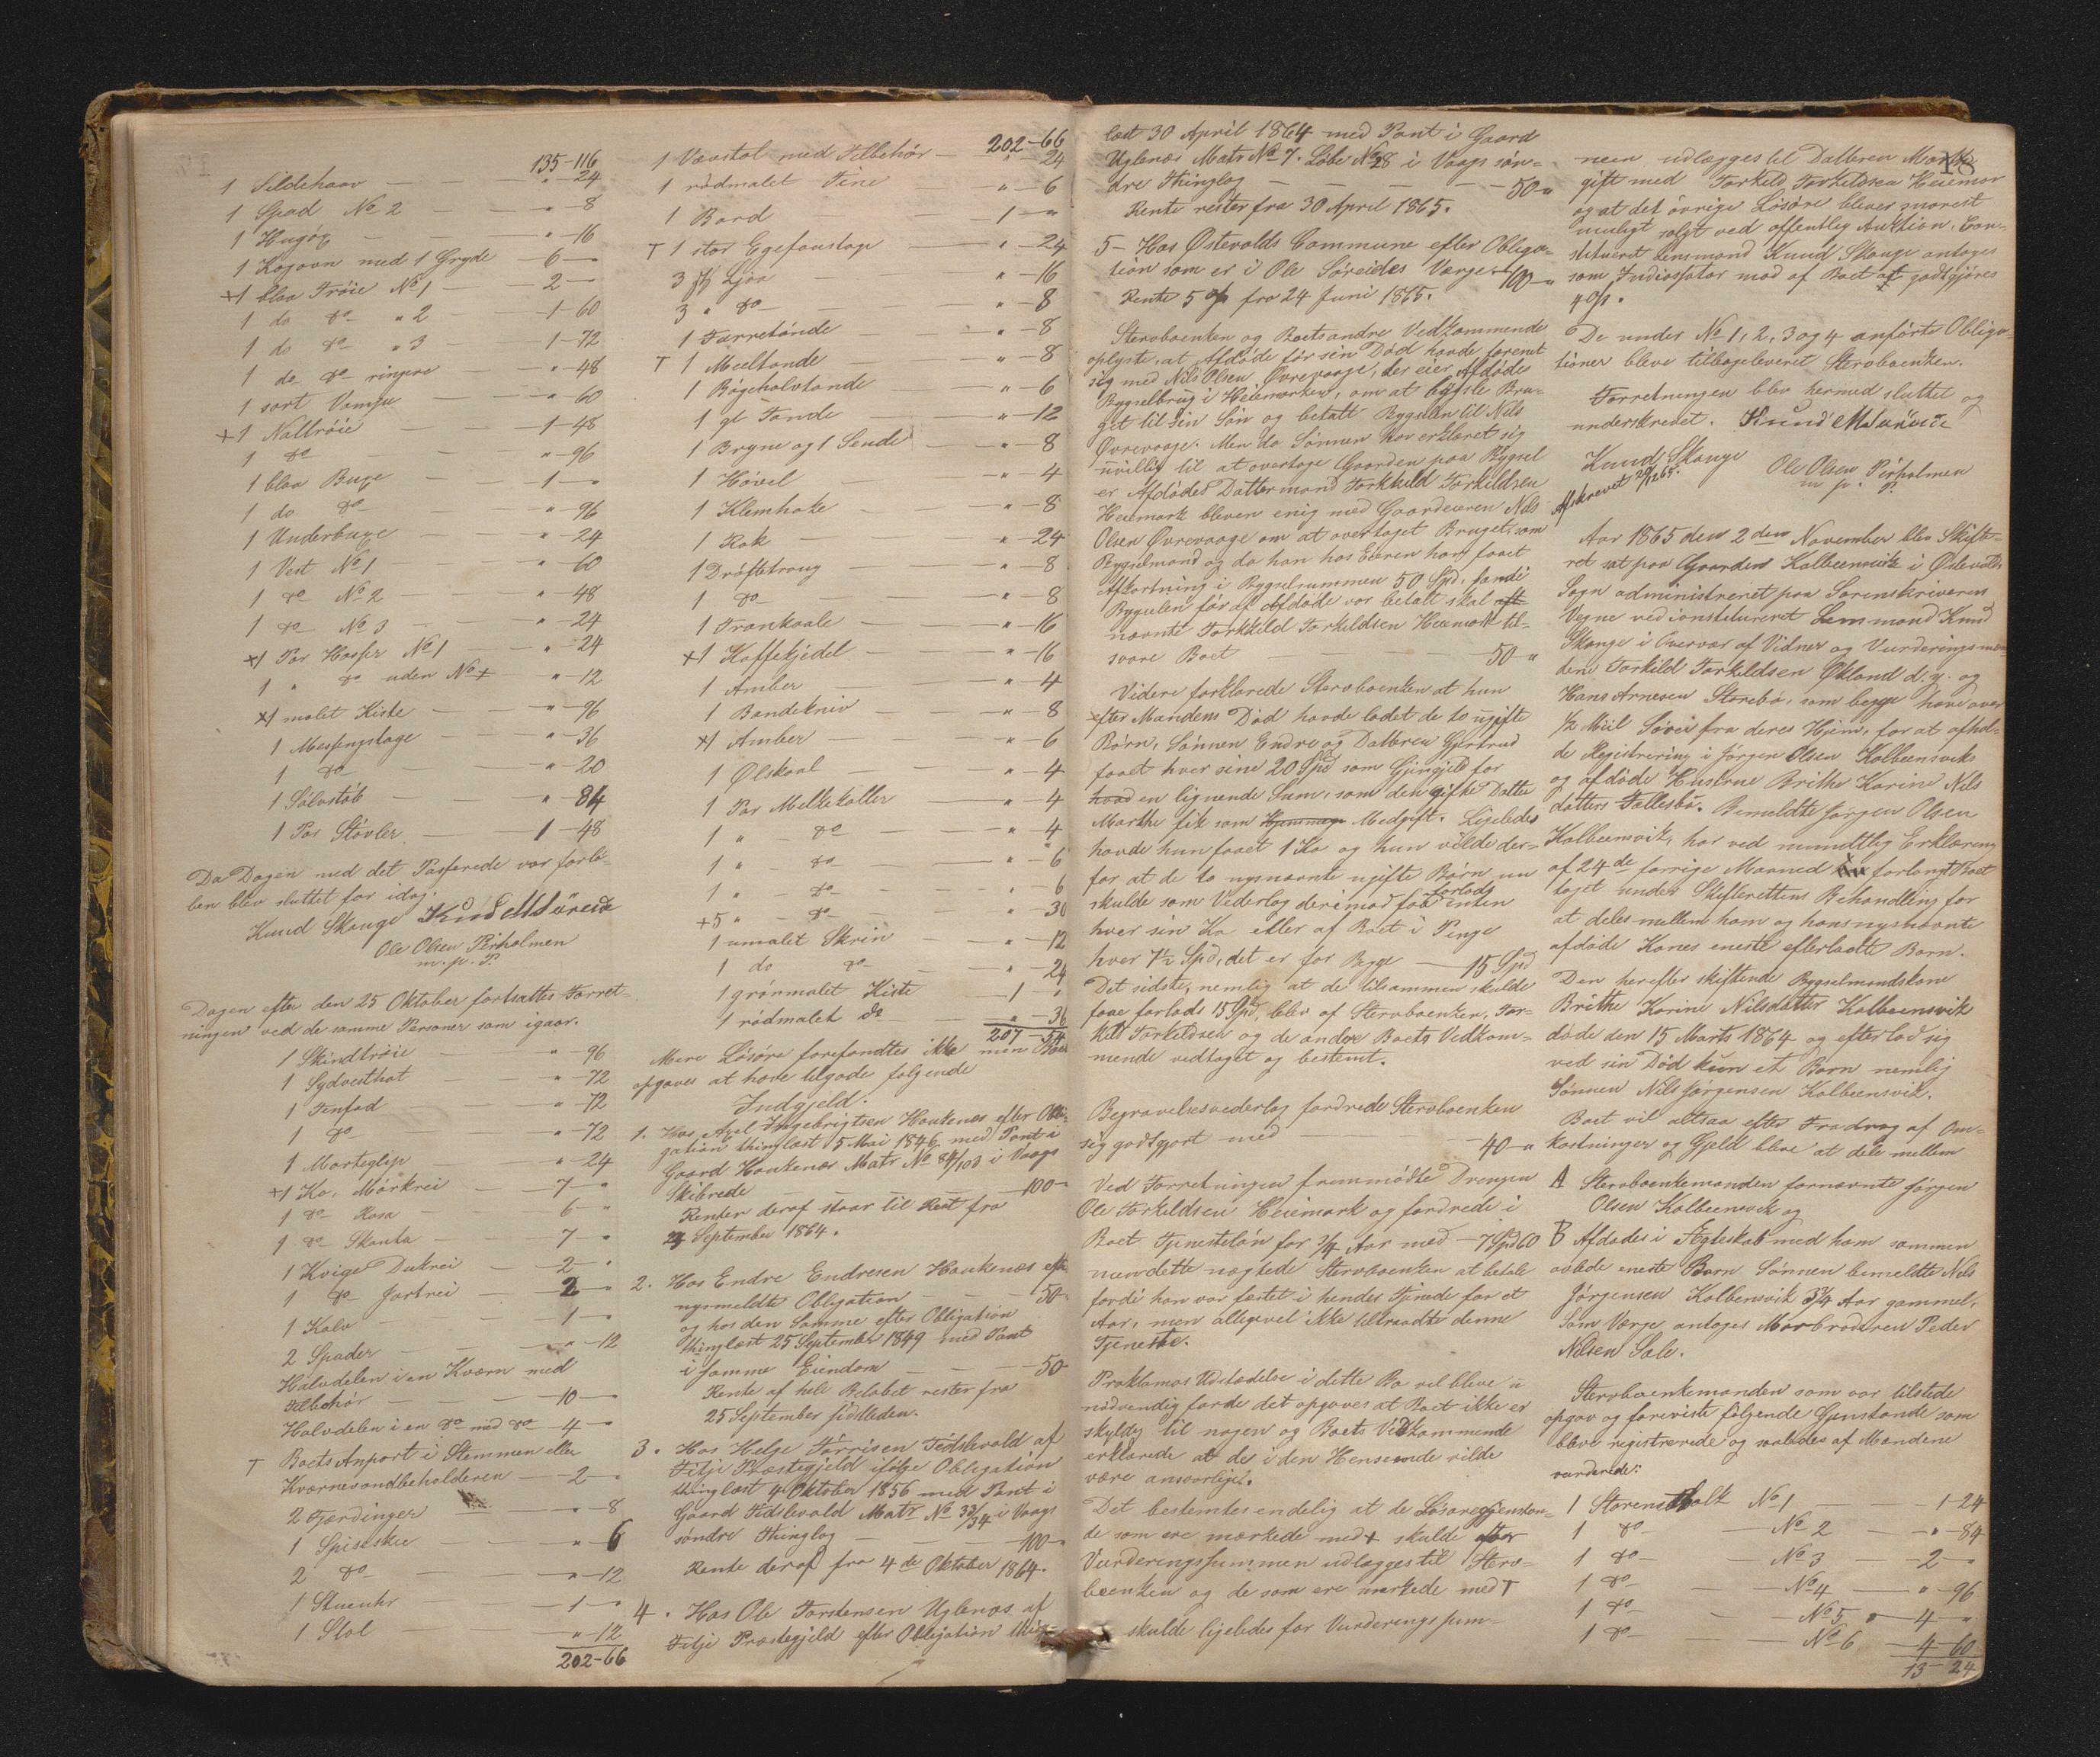 135-116
1 Sildehaav — — " - 24
1 Spad No 2 — — " - 8
1 Hugøg — — " - 16
1 Kogovn med 1 Gryde — 6 - "
+1 blaa Trøie No 1 — 2 - "
1 do do " 2 — 1 - 60
1 do do " 3 — 1 - 72
1 do do ringere — " - 48
1 sort Vamse — " - 60
+1 Nattrøie — 1 - 48
1 do — " - 96
1 blaa Buxe — 1 - "
1 do do — " - 96
1 Underbuxe — " - 24
1 Vest No 1 — " - 60
1 do No 2 — " - 48
1 do No 3 — " - 24
+1 Par Hoser No 1 — " - 24
1 " do uden No — " - 12
+1 malet Kiste — " - 96
1 Messingstage — " - 36
1 do — " - 20
1 Sølvstøb — " - 84
1 Par Støvler — 1 - 48
Da Dagen med det Passerede var forlø-
ben blev sluttet for idag.
Knud Skauge
Ole Olsen Pirholmen
m. p. P.
Dagen efter den 25 Oktober fortsattes Forret-
ningen ved de samme Personer som igaar.
1 Skindtrøie — " - 96
1 Sydvesthat — " - 72
1 Tinfad — " - 72
1 do — " - 72
1 Morteglip — " - 24
+1 Ko, Mørkrei — 7 - "
1 do Rosa — 6 - "
1 do Skanta — 7 - "
1 Kvige Dukrei — 2 - "
1 do Jartrei — 2 - "
1 Kalv — 1 - "
2 Spader — " - 12
Halvdelen i en Kværn med
Tilbehør — 10 - "
Halvdelen i en do med do — 4 - "
T Boets Anpart i Stemmen eller
Kværnevandbeholderen — 2 - "
2 Fjerdinger — " - 8
1 Spiseskee — " - 6
2 do — " - 12
1 Stueuhr — 1 - "
1 Stol — " - 12
202-66
202-66
1 Vævstol med Tilbehør — " - 24
1 rødmalet Tine — " - 6
1 Bord — 1 - "
T 1 stor Egefoustage — " - 24
3 Stk Ljaa — " - 16
3 " do — " - 8
1 Tørretønde — " - 8
T 1 Meeltønde — " - 8
1 Bøgeholstønde — " - 6
1 gl Tønde — " - 12
1 Bryne og 1 Sende — " - 8
1 Høvel — " - 4
1 Klemhake — " - 8
1 Rok — " - 24
1 Drøftetroug — " - 8
1 do — " - 8
1 Trankaale — " - 16
+1 Kaffekjedel — " - 16
1 Amber — " - 4
1 Bandekniv — " - 8
+1 Amber — " - 6
1 Ølskaal — " - 4
1 Par Melkekoller — " - 4
1 " do — " - 4
1 " do — " - 6
1 " do — " - 6
+5 " do — " - 30
1 umalet Skrin — " - 12
1 do do — " - 24
1 grønmalet Kiste — 1 - "
1 rødmalet do — " - 36
207-54
Mere Løsøre forefandtes ikke men Boet
opgaves at have tilgode følgende
Indgjeld.
1. Hos Axel Ingebrigtsen Haukenæs efter Obli-
gation thinglæst 15 Mai 1846 med Pant i
Gaard Haukenæs Matr No 84/103 i Vaags
Skibrede — 100 -
Renter deraf staar til Rest fra
29 September 1864.
2. Hos Endre Endresen Haukenæs efter
nysmeldte Obligation — 50 -
og hos den Samme efter Obligation
thinglæst 25 September 1849 med Pant
i samme Eiendom — 50
Rente af hele Beløbet rester fra
25 September sidstleden.
3. Hos Helge Tørrisen Tidslevold af
Fitje Præstegjeld ifølge Obligation
thinglæst 4 Oktober 1856 med Pant i
Gaard Tidslevold Matr No 33/34 i Vaags
søndre Thinglag — 100 -
Rente deraf fra 4de Oktober 1864.
4. Hos Ole Torstensen Uglenæs af
Fitje Præstegjeld efter Obligation thing-
læst 30 April 1864 med Pant i Gaard
Uglenæs Matr No 7. Løbe No 28 i Vaags søn-
dre Thinglag — 50 - "
Rente rester fra 30 April 1865.
5 - Hos Østevolds Commune efter Obliga-
tion som er i Ole Søreides Værge — 100 - "
Rente 5 % fra 24 Juni 1865.
Stervboenken og Boets andre Vedkommende
oplyste, at Afdøde før sin Død havde forenet
sig med Nils Olsen Øvrevaage, der eier Afdødes
Bygselbrug i Heiemarken, om at bygsle Bru-
get til sin Søn og betalt Bygselen til Nils
Øvrevaage. Men da Sønnen har erklæret sig
uvillig til at overtage Gaarden paa Bygsel
er Afdødes Dattermand Torkild Torkildsen
Heiemark bleven enig med Gaardeieren Nils
Olsen Øvrevaage om at overtaget Bruget, som
Bygselmand og da han hos Eieren har faaet
Afkortning i Bygselsummen 50 Spd. fordi
Bygselen før af Afdøde var betalt skal
nævnte Torkild Torkildsen Heiemark til-
svare Boet — 50 - "
Videre forklarede Stervboenken at hun
efter Mandens Død havde ladet de to ugifte
Børn, Sønnen Endre og Datteren Gjertrud
faaet hver sine 20 Spd som Gjengjeld for
en lignende Sum, som den gifte Datter
Marthe fik som Medgift. Ligeledes
havde hun faaet 1 Ko og hun vilde der-
for at de to nysnævnte ugifte Børn nu
skulde som Vederlag derimod forlods enten
hver sin Ko eller af Boet i Penge
hver 7½ Spd, det er for Begge — 15 Spd
Det sidste, nemlig at de tilsammen skulde
faae forlods 15 Spd, blev af Stervboenken, Tor-
kild Torkildsen og de andre Boets Vedkom-
mende vedtaget og bestemt.
Begravelsesvederlag fordrede Stervboenken
sig godtgjort med — 40 - "
Ved Forretningen fremmødte Drengen
Ole Torkildsen Heiemark og fordrede i
Boet Tjenesteløn for ¾ Aar med — 7 Spd 60
men dette nægtede Stervboenken at betale
fordi han var fæstet i hendes Tjeneste for et
Aar, men alligevel ikke tiltraadte denne
Tjeneste.
Proklamas Udstædelse i dette Bo vil blive u-
nødvendig da det opgaves at Boet ikke er
skyldig til nogen og Boets Vedkommende
erklærede at de i den Henseende vilde
være ansvarlige.
Det bestemtes endelig at de Løsøregjenstan-
de som ere mærkede med + skulde for
Vurderingssummen udlægges til Sterv-
boenken og de som ere mærkede med T
skulde ligeledes for Vurderingssum-
18
men udlægges til Datteren Marthe
gift med Torkild Torkildsen Heiemar
og at det øvrige Løsøre bleves snarest
muligt solgt ved offentlig Auktion. Con-
stitueret Lensmand Knud Skauge antoges
som Indkassator mod af Boet at godtgjøres
4 %.
De under No 1, 2, 3 og 4 anførte Obliga-
tioner bleve tilbageleveret Stervboenken.
Forretningen blev hermed sluttet og
underskrevet.
Knud Skauge
Ole Olsen Pirholmen
m. p. P.
Afskrevet 20/12 65.
Aar 1865 den 2den November blev Skifte-
ret sat paa Gaarden Kolbeensvik i Østevolds
Sogn administreret paa Sorenskriverens
Vegne ved constitueret Lensmand Knud
Skauge i Overvær af Vidner og Vurderingsmæn-
dene Torkild Torkildsen Økland d. y. og
Hans Arnesen Storebø, som begge have over
½ Miil Søvei fra deres Hjem, for at afhol-
de Registrering i Jørgen Olsen Kolbeensviks
og afdøde Hustrue Brithe Karine Nils
datters Fællesbo. Bemeldte Jørgen Olsen
Kolbeensvik, har ved mundtlig Erklæring
af 24de forrige Maaned forlangt Boet
taget under Skifterettens Behandling for
at deles mellem ham og hans nysnævnte
afdøde Kones eneste efterladte Barn.
Den herefter skiftende Bygselmandskone
Brithe Karine Nilsdatter Kolbeensvik
døde den 15 Marts 1864 og efterlod sig
ved sin Død kun et Barn nemlig
Sønnen Nils Jørgensen Kolbeensvik.
Boet vil altsaa efter Fradrag af Om-
kostninger og Gjeld blive at dele mellem
A Stervboenkemanden fornævnte Jørgen
Olsen Kolbeensvik og
B Afdødes i Ægteskab med ham sammen
avlede eneste Barn Sønnen bemeldte Nils
Jørgensen Kolbensvik 3¾ Aar gammel.
Som Værge antoges Morbroderen Peder
Nilsen Sale.
Stervboenkemanden som var tilstede
opgav og foreviste følgende Gjenstande som
bleve registrerede og saaledes af Mændene
vurderede:
1 No 1 — 1 - 24
1 do No 2 — " - 84
1 do No 3 — 2 - "
1 do No 4 — " - 96
1 do No 5 — 4 - "
1 do No 6 — 4 - 60
13 - 24